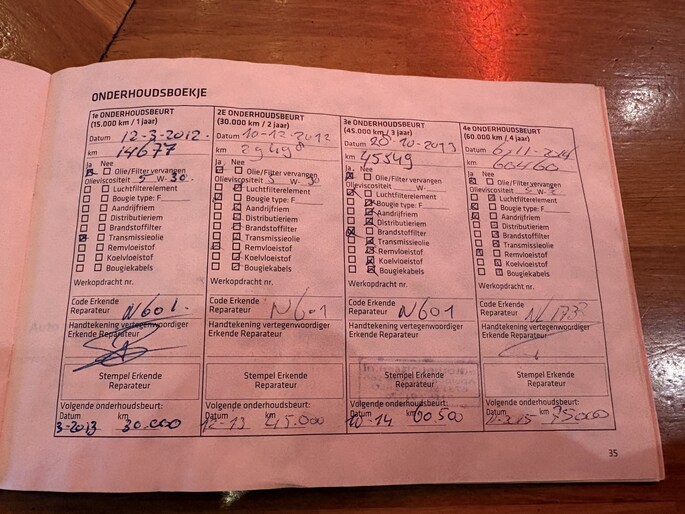 ONDERHOUDSBOEKJE
1e ONDERHOUDSBEURT
(15.000 km / 1 jaar)
Datum 12-3-2012.
km 14677
Ja Nee
Olie/Filter vervangen
Olieviscositeit 5 W- 30.
Luchtfilterelement
Bougie type: F
Aandrijfriem
Distributieriem
Brandstoffilter
Transmissieolie
Remvloeistof
Koelvloeistof
Bougiekabels
Werkopdracht nr.
Code Erkende
Reparateur N601.
Handtekening vertegenwoordiger
Erkende Reparateur
Stempel Erkende
Reparateur
Volgende onderhoudsbeurt:
Datum km
3-2013 30.000
2E ONDERHOUDSBEURT
(30.000 km / 2 jaar)
Datum 10-12-2012
km
Ja Nee
Olie/Filter vervangen
Olieviscositeit 5 W- 30
Luchtfilterelement
Bougie type: F
Aandrijfriem
Distributieriem
Brandstoffilter
Transmissieolie
Remvloeistof
Koelvloeistof
Bougiekabels
Werkopdracht nr.
Code Erkende
Reparateur N601
Handtekening vertegenwoordiger
Erkende Reparateur
Stempel Erkende
Reparateur
Volgende onderhoudsbeurt:
Datum km
12-13 45.000
3e ONDERHOUDSBEURT
(45.000 km / 3 jaar)
Datum 20-10-2013
km 45549
Ja Nee
Olie/Filter vervangen
Olieviscositeit W-
Luchtfilterelement
Bougie type: F
Aandrijfriem
Distributieriem
Brandstoffilter
Transmissieolie
Remvloeistof
Koelvloeistof
Bougiekabels
Werkopdracht nr.
Code Erkende
Reparateur N601
Handtekening vertegenwoordiger
Erkende Reparateur
Stempel Erkende
Reparateur
Volgende onderhoudsbeurt:
Datum km
10-14 60.500
4e ONDERHOUDSBEURT
(60.000 km / 4 jaar)
Datum 6-11-2014
km 60460
Ja Nee
Olie/Filter vervangen
Olieviscositeit W-
Luchtfilterelement
Bougie type: F
Aandrijfriem
Distributieriem
Brandstoffilter
Transmissieolie
Remvloeistof
Koelvloeistof
Bougiekabels
Werkopdracht nr.
Code Erkende
Reparateur
Handtekening vertegenwoordiger
Erkende Reparateur
Stempel Erkende
Reparateur
Volgende onderhoudsbeurt:
Datum km
11-2015 75000
35